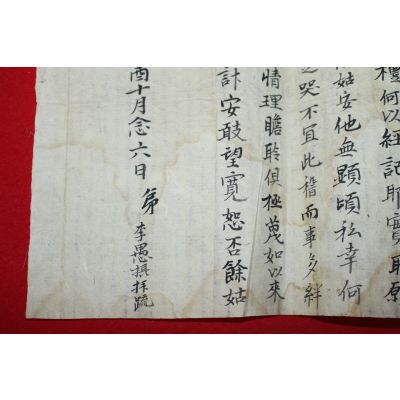 禮何以經記耶實耴原
姑安他無顯頃私幸何
哭不宜此稽而事多絆
情理瞻聆俱極蔑如以來
訃安敢望寬恕否餘姑
酉十月念六日 弟 李愚撰拜疏